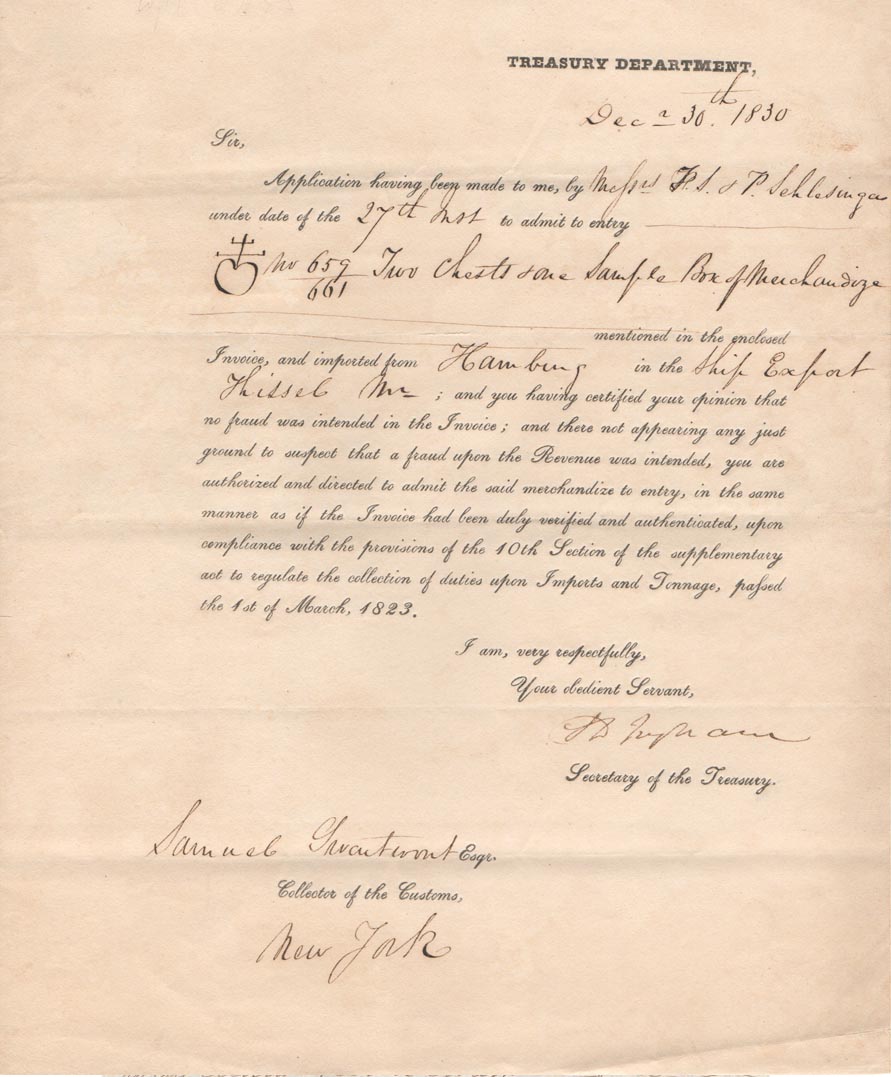 TREASURY DEPARTMENT,
Decr 30.th 1830
Sir,
Application having been made to me, by Messrs F. S. & P. Schlesinger
under date of the 27th Inst to admit to entry
No 659 Two Chests & one Sample Box of Merchandize
661
mentioned in the enclosed
Invoice, and imported from Hamburg in the Ship Export
; and you having certified your opinion that
no fraud was intended in the Invoice; and there not appearing any just
ground to suspect that a fraud upon the Revenue was intended, you are
authorized and directed to admit the said merchandize to entry, in the same
manner as if the Invoice had been duly verified and authenticated, upon
compliance with the provisions of the 10th Section of the supplementary
act to regulate the collection of duties upon Imports and Tonnage, paſsed
the 1st of March, 1823.
I am, very respectfully,
Your obedient Servant,
S D Ingham
Secretary of the Treasury.
Samuel Swartwout Esqr.
Collector of the Customs,
New York